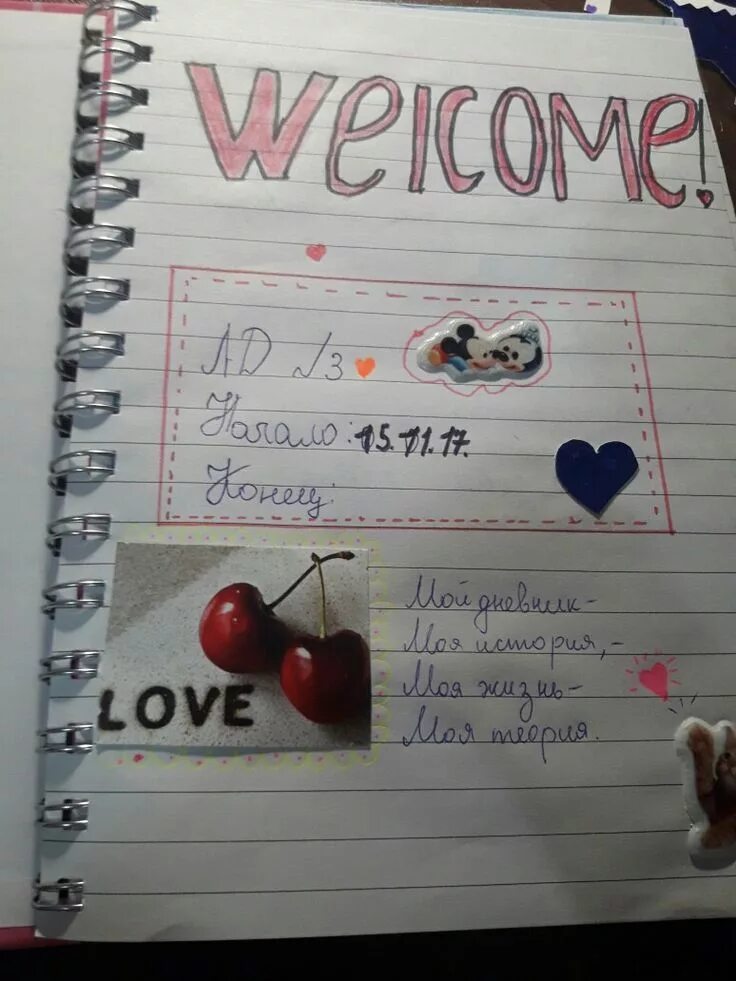 Welcome!
ЛД √3
Начало: 15.11.17.
Конец:
LOVE
Мой дневник-
Моя история,-
Моя жизнь-
Моя теория.